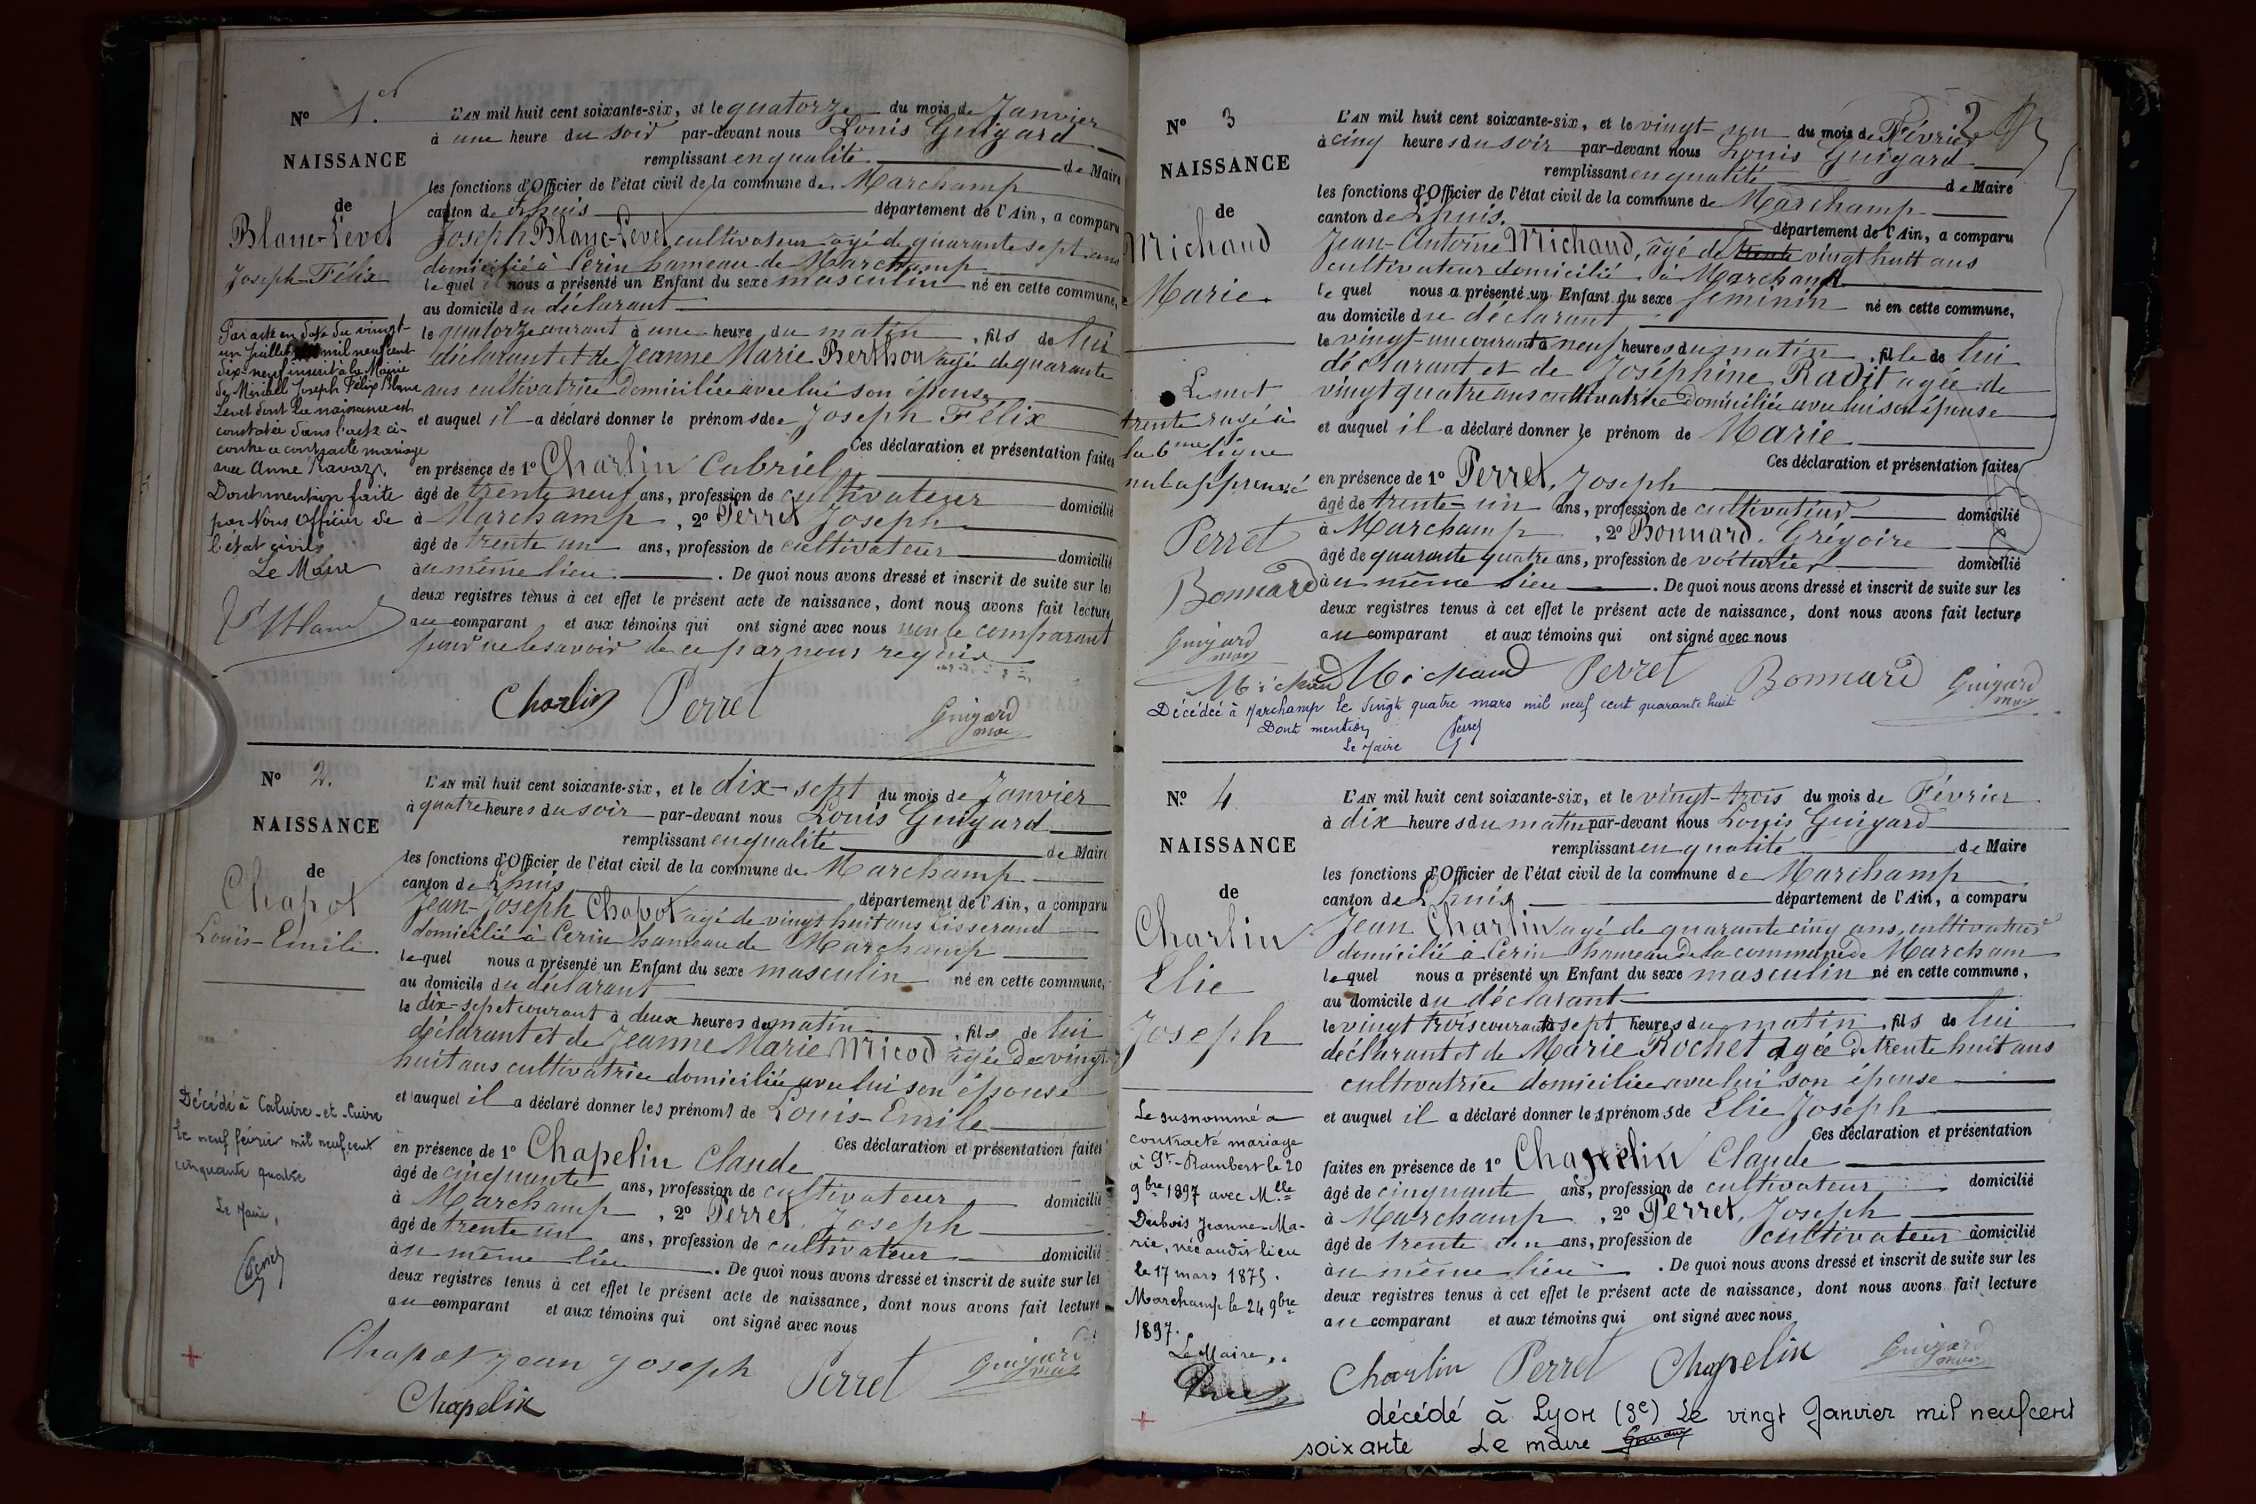 N° 1er
NAISSANCE
de
Blanc-Levet
Joseph-Félix
Par acte en date du vingt-
un juillet mil neuf cent
dix-neuf inscrit à la Mairie
de Joseph Félix Blanc
Levet dont la naissance est
constatée dans l'acte ci-
contre a contracté mariage
avec Anne Ravaz.
Dont mention faite
par Nous Officier de
l'état civil
Le Maire
L'AN mil huit cent soixante-six, et le quatorze du mois de Janvier
à une heure du soir par-devant nous Louis Guigard
remplissant en qualité de Maire
les fonctions d'Officier de l'état civil de la commune de Marchamp
canton de Lhuis département de l'Ain, a comparu
Joseph Blanc-Levet cultivateur agé de quarante sept ans
domicilié à Cerin hameau de Marchamp
le quel nous a présenté un Enfant du sexe masculin né en cette commune,
au domicile du déclarant
le quatorze courant à une heure du matin, fils de lui
déclarant et de Jeanne Marie Berthon agée de quarante
ans cultivatrice domiciliée avec lui son épouse
et auquel il a déclaré donner le prénoms de Joseph Félix
Ces déclaration et présentation faites
en présence de 1° Charlin Gabriel
âgé de trente neuf ans, profession de cultivateur domicilié
à Marchamp, 2° Perret Joseph
âgé de trente un ans, profession de cultivateur domicilié
au même lieu. De quoi nous avons dressé et inscrit de suite sur les
deux registres tenus à cet effet le présent acte de naissance, dont nous avons fait lecture
au comparant et aux témoins qui ont signé avec nous non le comparant
pour ne le savoir de ce par nous requis
Charlin Perret Guigard
N° 2.
NAISSANCE
de
Chapot
Louis-Emile.
Décédé à Caluire-et-Cuire
le neuf février mil neuf cent
cinquante quatre
Le Maire,
L'AN mil huit cent soixante-six, et le dix-sept du mois de Janvier
à quatre heures du soir par-devant nous Louis Guigard
remplissant en qualité de Maire
les fonctions d'Officier de l'état civil de la commune de Marchamp
canton de Lhuis département de l'Ain, a comparu
Jean-Joseph Chapot agé de vingt huit ans tisserand
domicilié à Cerin hameau de Marchamp
le quel nous a présenté un Enfant du sexe masculin né en cette commune,
au domicile du déclarant
le dix-sept courant à deux heures du matin, fils de lui
déclarant et de Jeanne Marie Micod agée de vingt
huit ans cultivatrice domiciliée avec lui son épouse
et auquel il a déclaré donner les prénoms de Louis-Emile
Ces déclaration et présentation faites
en présence de 1° Chapelin Claude
âgé de cinquante ans, profession de cultivateur domicilié
à Marchamp, 2° Perret, Joseph
âgé de trente un ans, profession de cultivateur domicilié
au même lieu. De quoi nous avons dressé et inscrit de suite sur les
deux registres tenus à cet effet le présent acte de naissance, dont nous avons fait lecture
au comparant et aux témoins qui ont signé avec nous
Chapot jean joseph Perret Guigard
Chapelin
2
N° 3
NAISSANCE
de
Michaud
Marie.
Le mot
trente rayé à
la 6me ligne
nul approuvé
Perret
Bonnard
Guigard
Michaud
L'AN mil huit cent soixante-six, et le vingt-un du mois de Février
à cinq heures du soir par-devant nous Louis Guigard
remplissant en qualité de Maire
les fonctions d'Officier de l'état civil de la commune de Marchamp
canton de Lhuis. département de l'Ain, a comparu
Jean-Antoine Michaud, âgé de trente vingt huit ans
cultivateur domicilié à Marchamp
le quel nous a présenté un Enfant du sexe féminin né en cette commune,
au domicile du déclarant
le vingt-un courant à neuf heures du matin, fille de lui
déclarant et de Joséphine Radit agée de
vingt quatre ans cultivatrice domiciliée avec lui son épouse
et auquel il a déclaré donner le prénom de Marie
Ces déclaration et présentation faites
en présence de 1° Perret, Joseph
âgé de trente-un ans, profession de cultivateur domicilié
à Marchamp, 2° Bonnard. Grégoire
âgé de quarante quatre ans, profession de voiturier domicilié
au même lieu. De quoi nous avons dressé et inscrit de suite sur les
deux registres tenus à cet effet le présent acte de naissance, dont nous avons fait lecture
au comparant et aux témoins qui ont signé avec nous
Michaud Perret Bonnard Guigard
Décédée à Marchamp le vingt quatre mars mil neuf cent quarante huit
Dont mention
Le Maire
N° 4
NAISSANCE
de
Charlin
Elie
Joseph
Le susnommé a
contracté mariage
à St-Rambert le 20
9bre 1897 avec Mlle
Dubois Jeanne-Ma-
rie, née audit lieu
le 17 mars 1875.
Marchamp le 24 9bre
1897.
Le Maire,
L'AN mil huit cent soixante-six, et le vingt-trois du mois de Février
à dix heures du matin par-devant nous Louis Guigard
remplissant en qualité de Maire
les fonctions d'Officier de l'état civil de la commune de Marchamp
canton de Lhuis département de l'Ain, a comparu
Jean Charlin agé de quarante cinq ans, cultivateur
domicilié à Cerin hameau de la commune de Marcham
le quel nous a présenté un Enfant du sexe masculin né en cette commune,
au domicile du déclarant
le vingt trois courant à sept heures du matin, fils de lui
déclarant et de Marie Rochet agée de trente huit ans
cultivatrice domiciliée avec lui son épouse
et auquel il a déclaré donner les prénoms de Elie Joseph
Ces déclaration et présentation
faites en présence de 1° Chapelin Claude
âgé de cinquante ans, profession de cultivateur domicilié
à Marchamp, 2° Perret, Joseph
âgé de trente un ans, profession de cultivateur domicilié
au même lieu. De quoi nous avons dressé et inscrit de suite sur les
deux registres tenus à cet effet le présent acte de naissance, dont nous avons fait lecture
au comparant et aux témoins qui ont signé avec nous
Charlin Perret Chapelin Guigard
décédé à Lyon (3e) Le vingt Janvier mil neuf cent
soixante Le maire